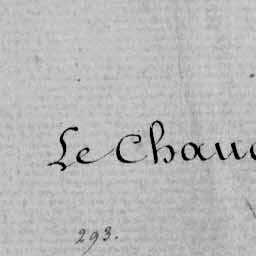 Le Chau
293.